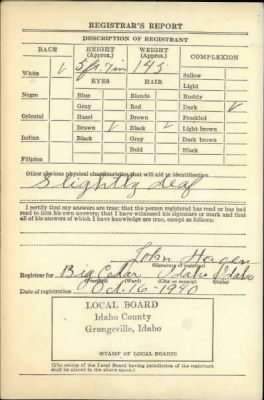 REGISTRAR'S REPORT
DESCRIPTION OF REGISTRANT
RACE HEIGHT (Approx.) WEIGHT (Approx.) COMPLEXION
White ✓ 5 ft. 7 in 145 Sallow
EYES HAIR Light
Negro Blue Blonde Ruddy
Gray Red Dark ✓
Oriental Hazel Brown Freckled
Brown ✓ Black ✓ Light brown
Indian Black Gray Dark brown
Bald Black
Filipino
Other obvious physical characteristics that will aid in identification
Slightly deaf
I certify that my answers are true; that the person registered has read or has had
read to him his own answers; that I have witnessed his signature or mark and that
all of his answers of which I have knowledge are true, except as follows:
John Hagen
(Signature of registrar)
Registrar for Big Cedar Idaho Idaho
(Precinct) (Ward) (City or county) (State)
Date of registration Oct. 16-1940
LOCAL BOARD
Idaho County
Grangeville, Idaho
(STAMP OF LOCAL BOARD)
(The stamp of the Local Board having jurisdiction of the registrant
shall be placed in the above space.)